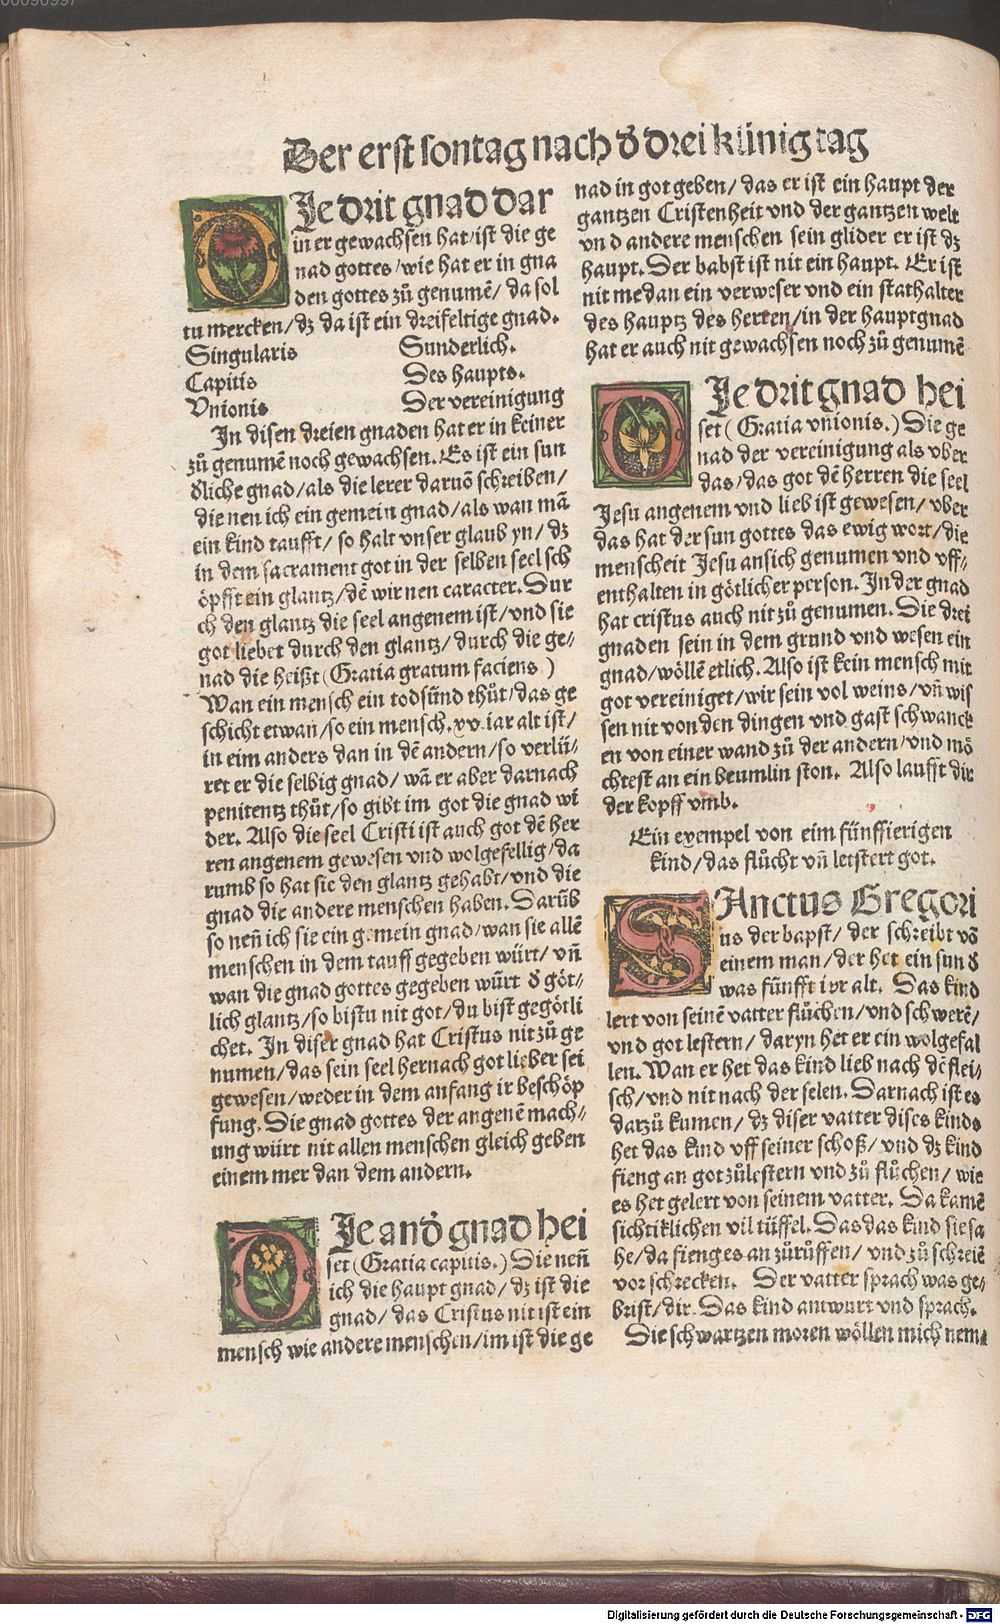 00090997
Der erst sontag nach d̓ drei künig tag
DJe drit gnad dar
in er gewachsen hat/ist die ge
nad gottes/wie hat er in gna
den gottes zů genumē/da sol
tu mercken/dz da ist ein dreifeltige gnad.
Singularis Sunderlich.
Capitis Des haupts.
Vnionis Der vereinigung
In disen dreien gnaden hat er in keiner
zů genumē noch gewachsen. Es ist ein sun
d̓liche gnad/als die lerer daruō schreiben/
die nen ich ein gemein gnad/als wan mā
ein kind taufft/so halt vnser glaub yn/dz
in dem sacrament got in der selben seel sch
öpfft ein glantz/dē wir nen caracter. Dur
ch den glantz die seel angenem ist/vnd sie
got liebet durch den glantz/durch die ge⸗
nad die heißt (Gratia gratum faciens)
Wan ein mensch ein todsünd thůt/das ge
schicht etwan/so ein mensch .xv. iar alt ist/
in eim anders dan in dē andern/so verlü⸗
ret er die selbig gnad/wā er aber darnach
penitentz thůt/so gibt im got die gnad wi
der. Also die seel Cristi ist auch got dē her
ren angenem gewesen vnd wolgefellig/da
rumb so hat sie den glantz gehabt/vnd die
gnad die andere menschen haben. Darūb
so neñ ich sie ein gemein gnad/wan sie allē
menschen in dem tauff gegeben würt/vñ
wan die gnad gottes gegeben würt d̓ göt⸗
lich glantz/so bistu nit got/du bist gegötli
chet. In diser gnad hat Cristus nit zů ge
numen/das sein seel hernach got lieber sei
gewesen/weder in dem anfang ir beschöp
fung. Die gnad gottes der angenē mach⸗
ung würt nit allen menschen gleich geben
einem mer dan dem andern.
DJe and̓ gnad hei
set (Gratia capitis.) Die neñ
ich die haupt gnad/dz ist die
gnad/das Cristus nit ist ein
mensch wie andere menschen/im ist die ge
nad in got geben/das er ist ein haupt der
gantzen Cristenheit vnd der gantzen welt
vnd andere menschen sein glider er ist dz
haupt. Der babst ist nit ein haupt. Er ist
nit me dan ein verweser vnd ein stathalter
des hauptz des herren/in der hauptgnad
hat er auch nit gewachsen noch zů genumē
DJe drit gnad hei
set (Gratia vñionis.) Die ge
nad der vereinigung als vber
das/das got dē herren die seel
Jesu angenem vnd lieb ist gewesen/vber
das hat der sun gottes das ewig wort/die
menscheit Jesu an sich genumen vnd vff⸗
enthalten in götlicher person. In der gnad
hat cristus auch nit zů genumen. Die drei
gnaden sein in dem grund vnd wesen ein
gnad/wöllē etlich. Also ist kein mensch mit
got vereiniget/wir sein vol weins/vñ wis
sen nit von den dingen vnd gast schwanck
en von einer wand zů der andern/vnd mö
chtest an ein beumlin ston. Also laufft dir
der kopff vmb.
Ein exempel von eim fünffierigen
kind/das flůcht vñ letstert got.
SAnctus Gregori
us der bapst/der schreibt vō
einem man/der het ein sun d̓
was fünfft ior alt. Das kind
lert von seinē vatter flůchen/vnd schwerē/
vnd got lestern/daryn het er ein wolgefal
len. Wan er het das kind lieb nach dē flei⸗
sch/vnd nit nach der selen. Darnach ist es
darzů kumen/dz diser vatter dises kinds
het das kind vff seiner schoß/vnd dz kind
fieng an got zů lestern vnd zů flůchen/wie
es het gelert von seinem vatter. Da kamē
sichtiklichen vil tüffel. Das das kind sie sa
he/da fieng es an zů růffen/vnd zů schreiē
vor schrecken. Der vatter sprach was ge⸗
brist/dir. Das kind antwurt vnd sprach.
Die schwartzen moren wöllen mich nem⸗
Digitalisierung gefördert durch die Deutsche Forschungsgemeinschaft - DFG